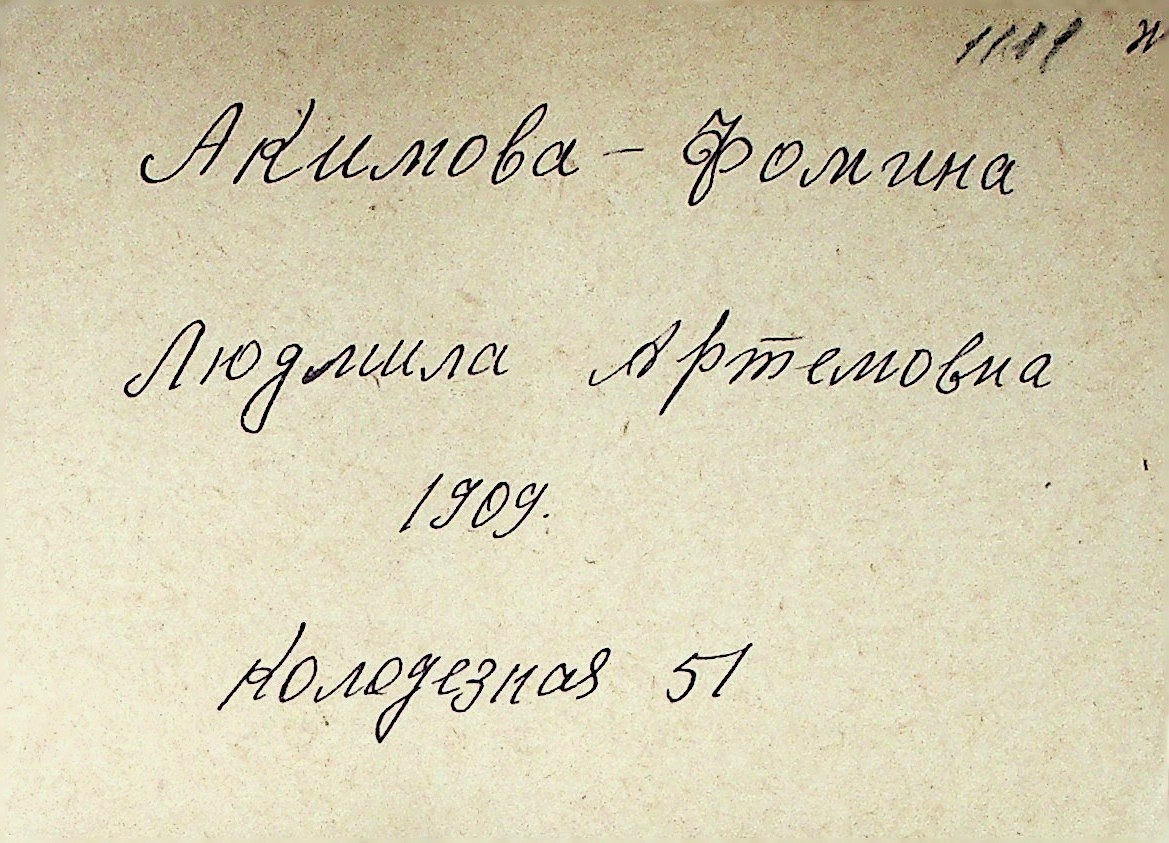 Акимова - Фомина
Людмила Артемовна
1909.
Колодезная 51